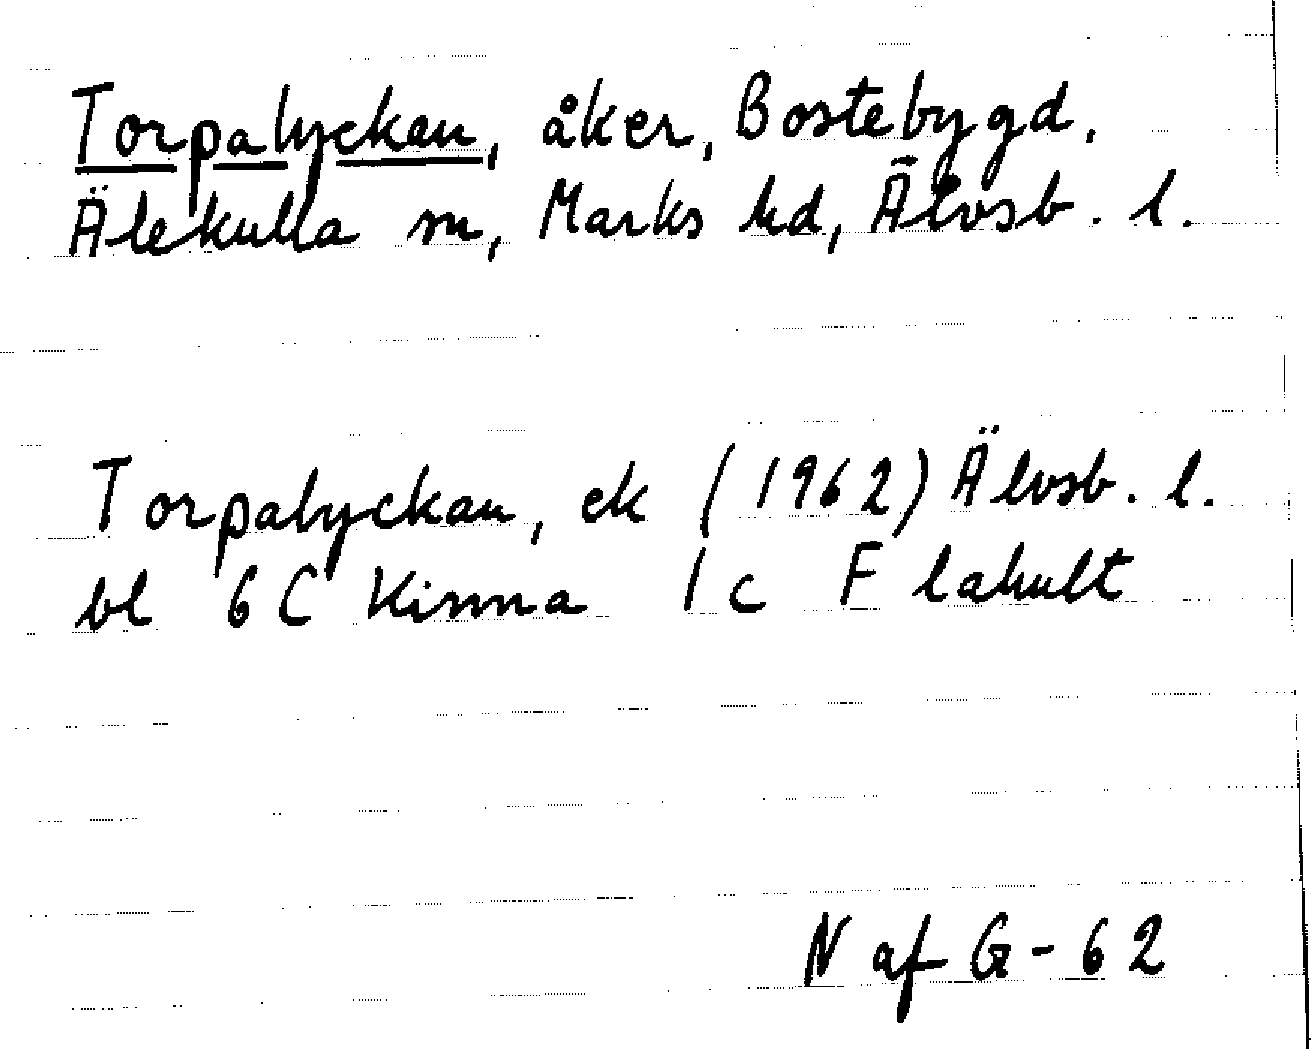 Torpalyckan, åker, Bostebygd,
Älekulla sn, Marks hd, Älvsb. l.
Torpalyckan, ek (1962) Älvsb. l.
bl 6 C Kinna 1 c Flahult
N af G - 62